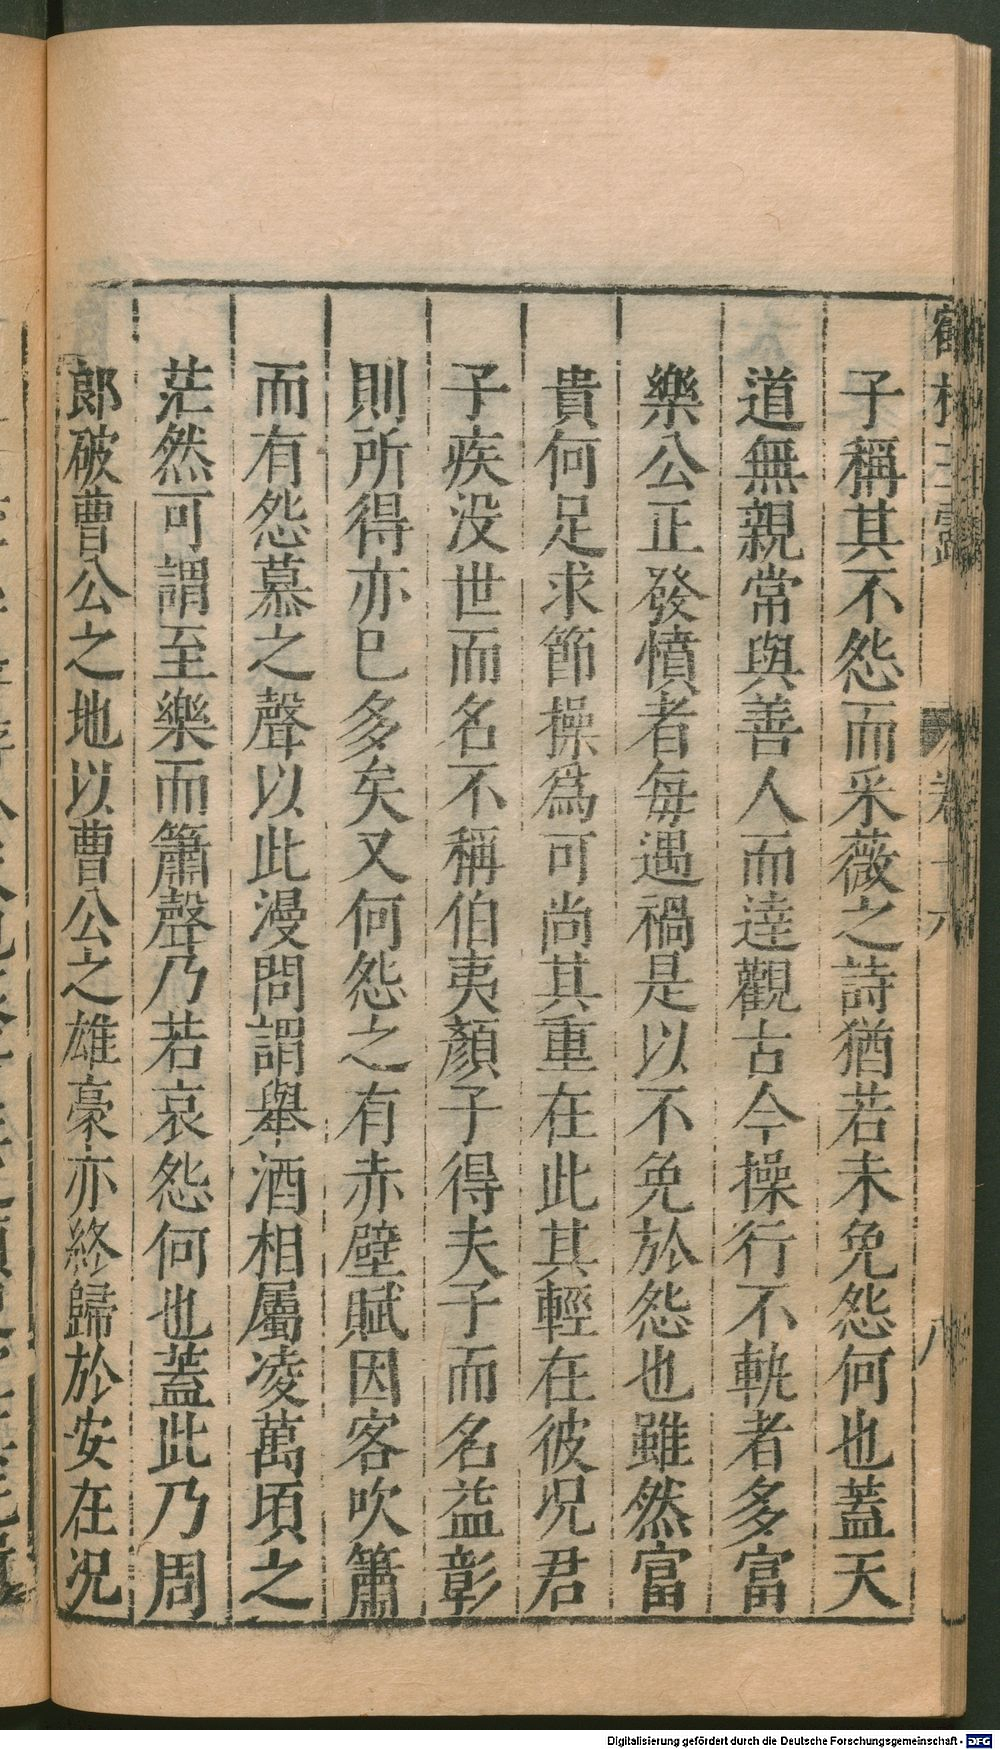 子稱其不怨而采薇之詩猶若未免怨何也蓋天
道無親常與善人而達觀古今操行不軌者多富
樂公正發憤者每遇禍是以不免於怨也雖然富
貴何足求節操為可尚其重在此其輕在彼況君
子疾没世而名不稱伯夷顏子得夫子而名益彰
則所得亦已多矣又何怨之有赤壁賦因客吹簫
而有怨慕之聲以此漫問謂舉酒相屬凌萬頃之
茫然可謂至樂而簫聲乃若哀怨何也蓋此乃周
郎破曹公之地以曹公之雄豪亦終歸於安在况
Digitalisierung gefördert durch die Deutsche Forschungsgemeinschaft - DFG